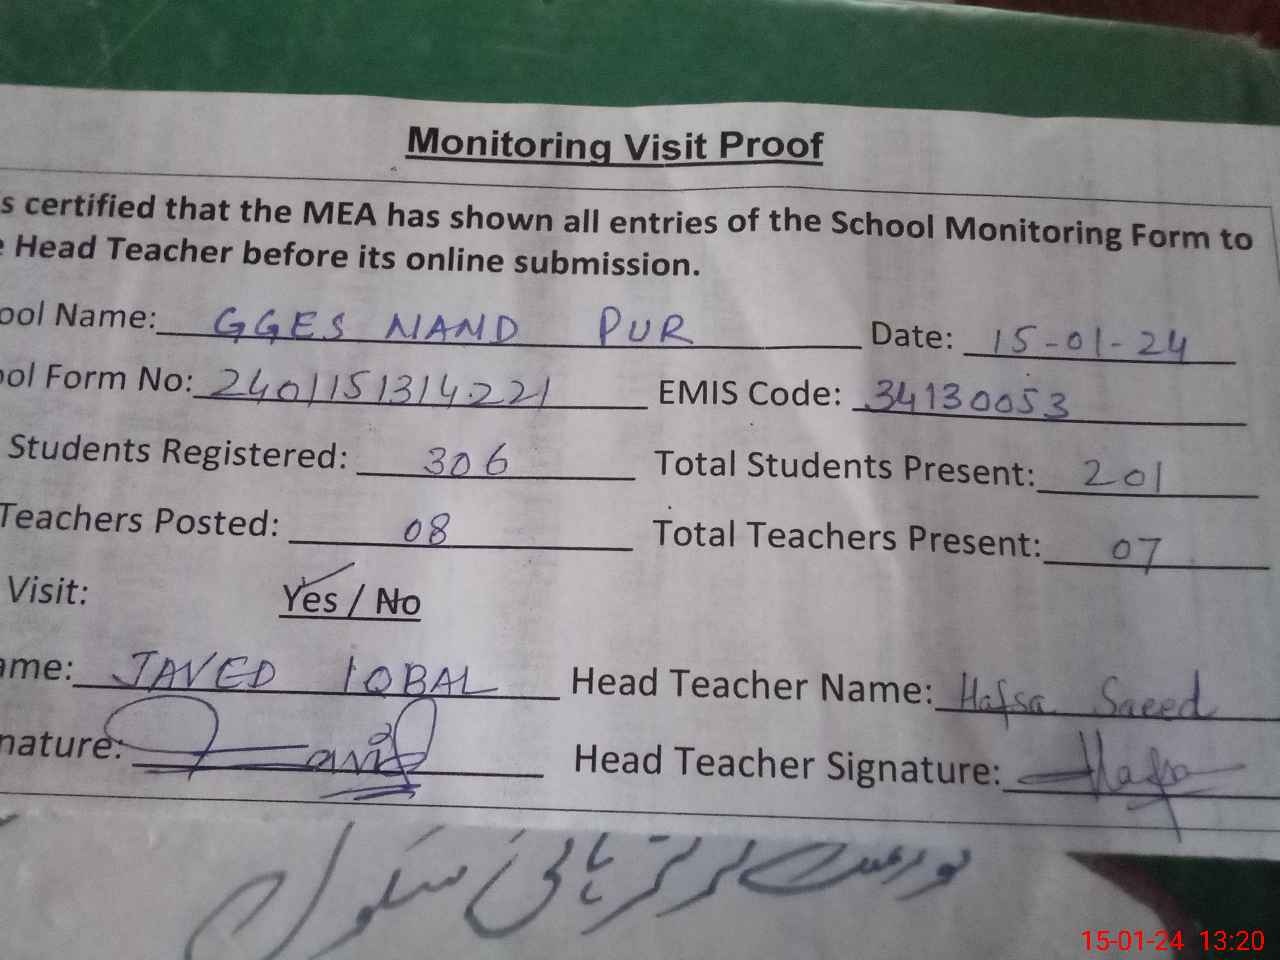 Monitoring Visit Proof
s certified that the MEA has shown all entries of the School Monitoring Form to
e Head Teacher before its online submission.
ool Name: GGES NAND PUR Date: 15-01-24
ool Form No: 2401151314221 EMIS Code: 34130053
Students Registered: 306 Total Students Present: 201
Teachers Posted: 08 Total Teachers Present: 07
Visit: Yes / No
ame: JAVED IQBAL Head Teacher Name: Hafsa Saeed
nature: Javid Head Teacher Signature: Hafsa
گورنمنٹ گرلز ہائی سکول
15-01-24 13:20